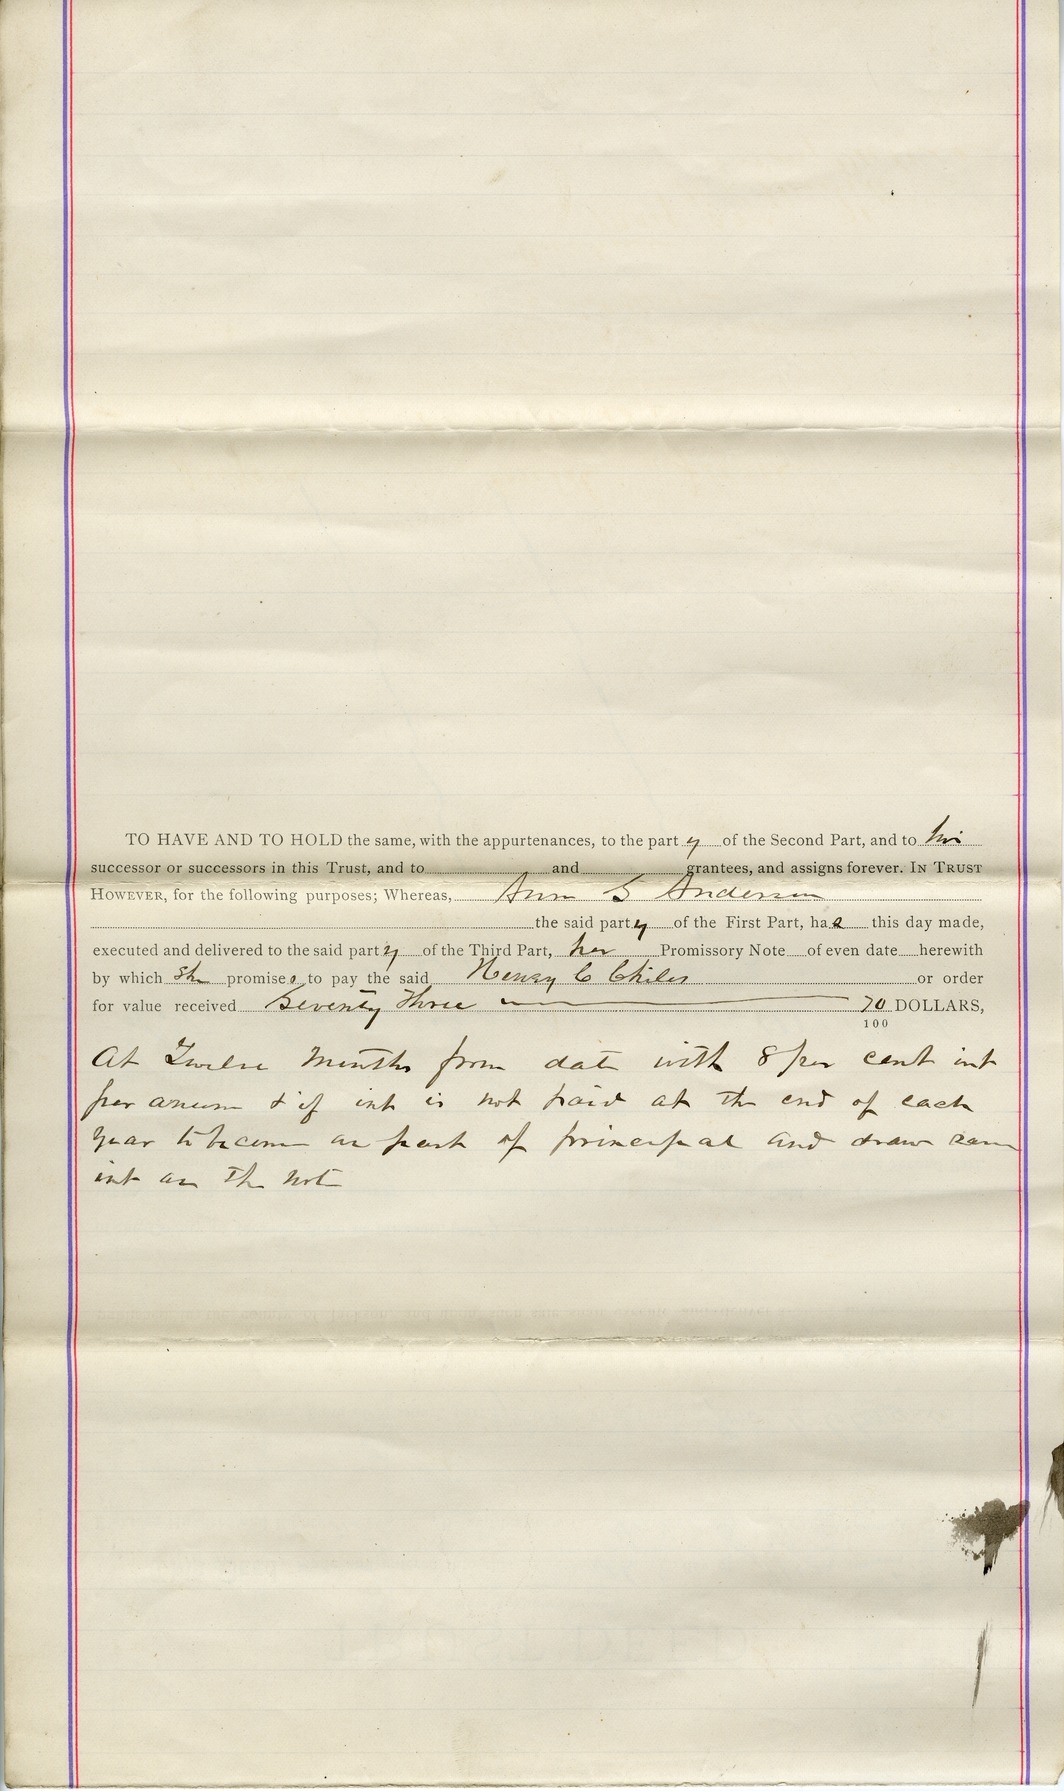 TO HAVE AND TO HOLD the same, with the appurtenances, to the part y of the Second Part, and to his
successor or successors in this Trust, and to and grantees, and assigns forever. IN TRUST
HOWEVER, for the following purposes; Whereas, Ann S Anderson
the said party of the First Part, has this day made,
executed and delivered to the said party of the Third Part, her Promissory Note of even date herewith
by which She promises to pay the said Henry C Chiles or order
for value received Seventy Three 70 DOLLARS,
100
At Twelve Months from date with 8 per cent int
per anum & if int is not paid at the end of each
year to become as part of principal and draw same
int as the note